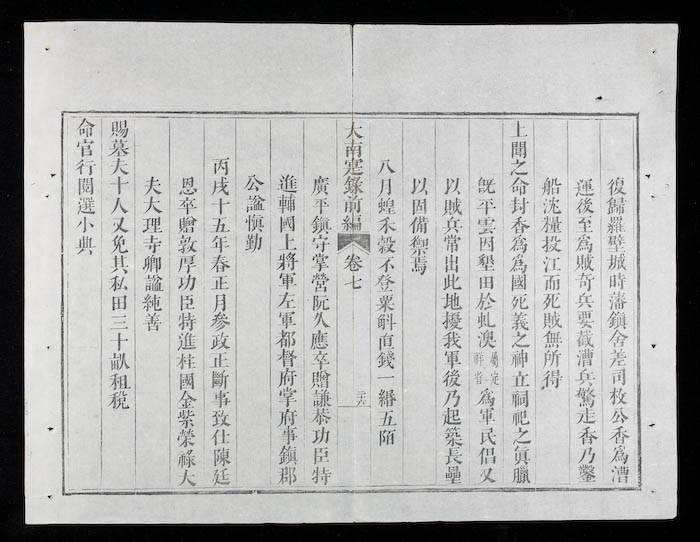 復歸羅壁城時瀋鎮舍差司枚公香爲漕
運後至爲賊奇兵要截漕兵驚走香乃鑿
船沈糧投江而死賊無所得
上聞之命封香爲爲國死義之神立祠祀之眞臘
旣平雲因墾田於虬澳爲軍民倡又
以賊兵常出此地擾我軍後乃起築長壘
以固備禦焉
八月蝗禾穀不登粟斛直錢一緡五陌
大南寔錄前編 卷七 二十六
廣平鎮守掌營阮久應卒贈謙恭功臣特
進輔國上將軍左軍都督府掌府事鎮郡
公謚愼勤
丙戌十五年春正月參政正斷事致仕陳廷
恩卒贈敦厚功臣特進桂國金紫榮祿大
夫大理寺卿謚純善
賜墓夫十人又免其私田三十畝租稅
命官行閱選小典